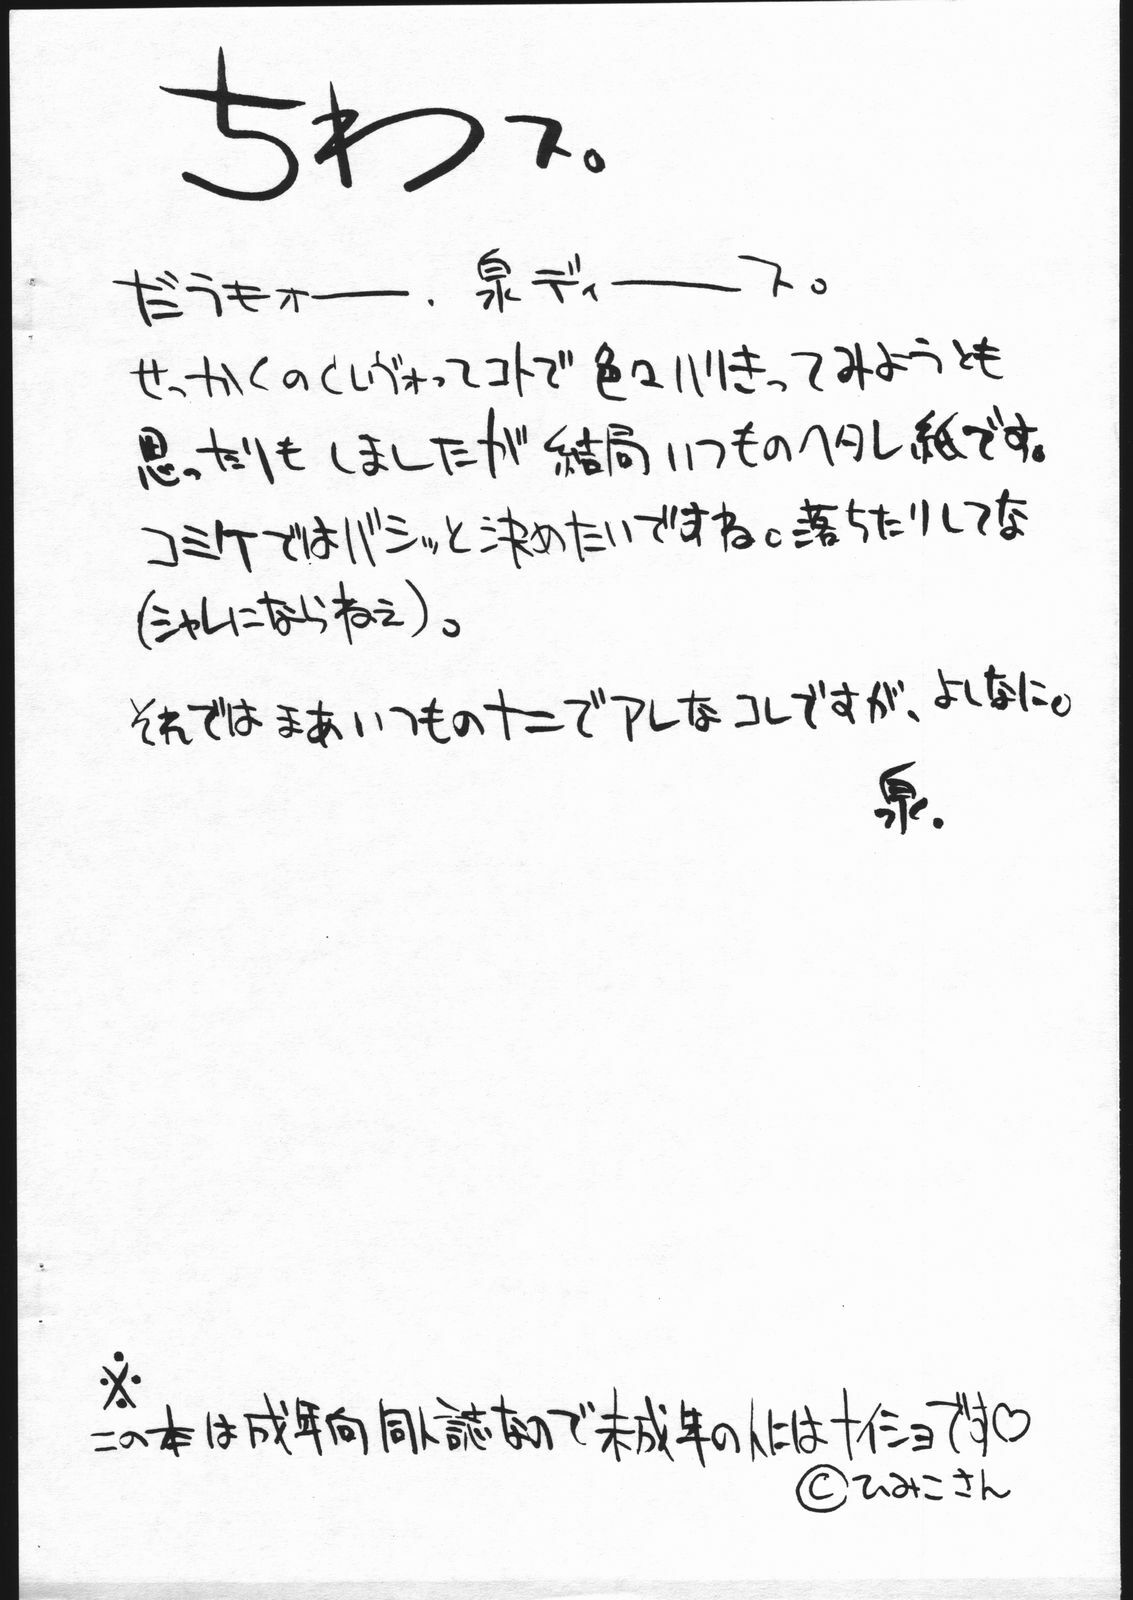 ちわス。
だうもォー. 泉ディース。
せっかくのくしヴォってコトで 色々ハリきってみようとも
思ったりもしましたが 結局 いつものヘタレ紙です。
コミケではバシッと決めたいですね。落ちたりしてな
(シャレにならねえ)。
それでは まあ いつものナニでアレな コレですが、よしなに。
泉.
※
この本は成年向同人誌なので未成年の人にはナイショです♡
©ひみこさん